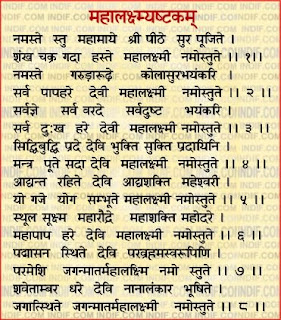 महालक्ष्म्यष्टकम्
नमस्ते स्तु महामाये श्री पीठे सुर पूजिते ।
शंख चक्र गदा हस्ते महालक्ष्मी नमोस्तुते ।। १।।
नमस्ते गरुडारूढ़े कोलासुरभयंकरि ।
सर्व पापहरे देवी महालक्ष्मी नमोस्तुते ।। २ ।।
सर्वज्ञे सर्व वरदे सर्वदुष्ट भयंकरी ।
सर्व दुःख हरे देवी महालक्ष्मी नमोस्तुते ।। ३ ।।
सिद्धिबुद्धि प्रदे देवि भुक्ति सुक्ति प्रदायिनि ।
मन्त्र पूते सदा देवि महालक्ष्मी नमोस्तुते ।। ४ ।।
आद्यन्त रहिते देवि आद्यशक्ति महेश्वरी ।
यो गजे योग सम्भूते महालक्ष्मी नमोस्तुते ।। ५ ।।
स्थूल सूक्ष्म महारोद्रे महाशक्ति महोदरे ।
महापाप हरे देवि महालक्ष्मी नमोस्तुते ।। ६ ।।
पद्मासन स्थिते देवि परब्रहमस्वरूपिणि ।
परमेशि जगन्मातर्महालक्ष्मी नमो स्तुते ।। ७ ।।
शवेताम्बर धरे देवि नानालंकार भूषिते ।
जगात्स्थिते जगन्मातर्महालक्ष्मी नमोस्तुते ।। ८ ।।
INDIF.COM